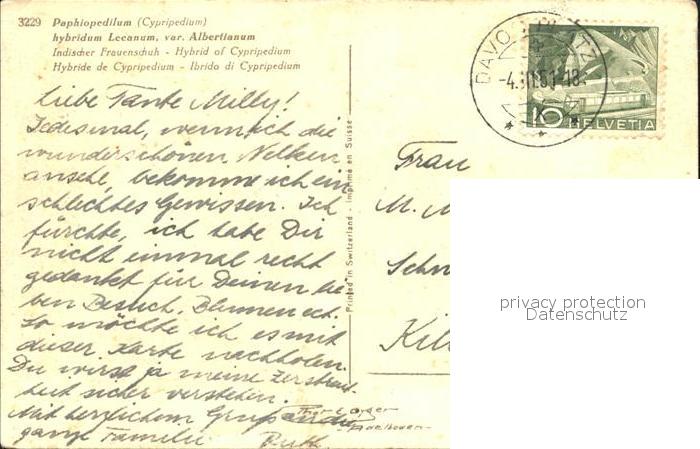 3229 Paphiopedilum (Cypripedium)
hybridum Lecanum, var. Albertianum
Indischer Frauenschuh - Hybrid of Cypripedium
Hybride de Cypripedium - Ibrido di Cypripedium
Liebe Tante Milly!
Jedesmal, wenn ich die
wunderschönen Nelken
ansehe, bekomme ich ein
schlechtes Gewissen. Ich
fürchte, ich habe Dir
nicht einmal recht
gedankt für Deinen lie-
ben Besuch, Blumen ect.
So möchte ich es mit
dieser Karte nachholen.
Du wirst ja meine Zerstreut-
heit sicher verstehen.
Mit herzlichem Gruss an die
ganze Familie Ruth.
Printed in Switzerland - Imprimé en Suisse
DAVOS PLATZ
-4. 51-18
5
HELVETIA
Frau
M. M
Schw
Kil
privacy protection
Datenschutz